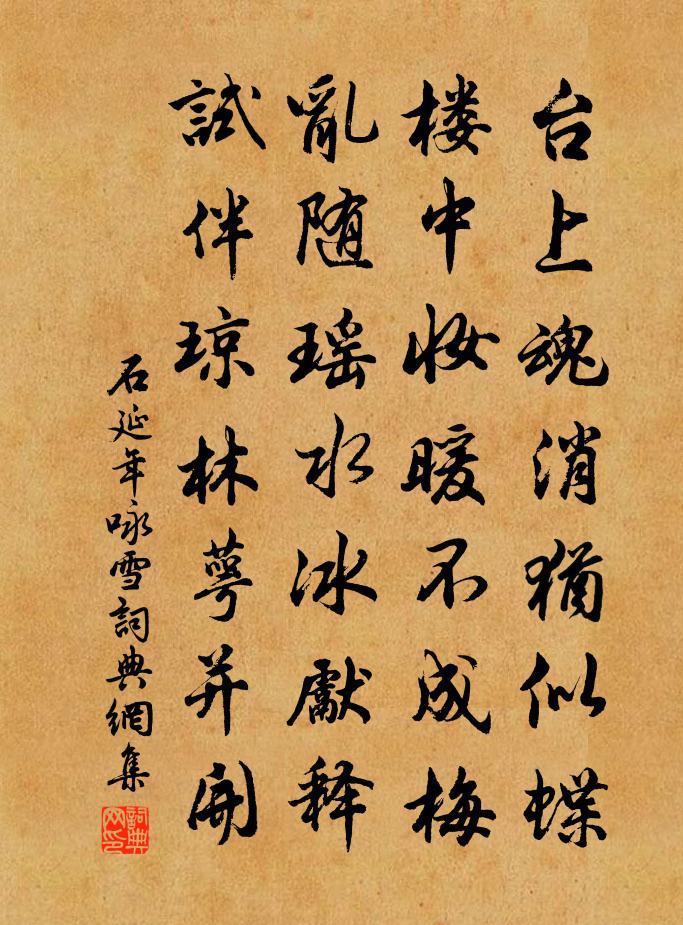 台上魂消犹似蝶
楼中妆暖不成梅
亂随瑶水冰獻释
試伴琼林萼并開
石延年咏雪詞典網集
詞典网印